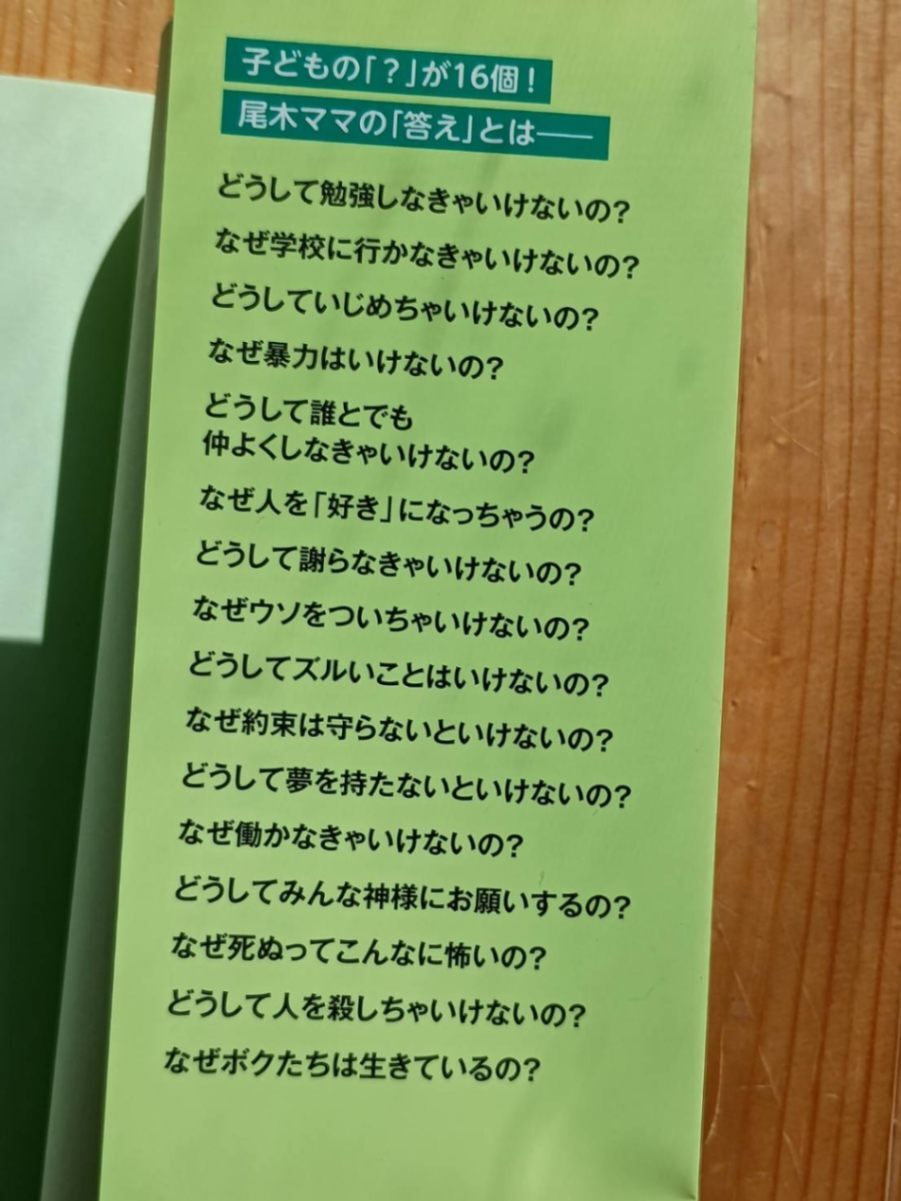 子どもの「？」が16個！
尾木ママの「答え」とは――
どうして勉強しなきゃいけないの？
なぜ学校に行かなきゃいけないの？
どうしていじめちゃいけないの？
なぜ暴力はいけないの？
どうして誰とでも
仲よくしなきゃいけないの？
なぜ人を「好き」になっちゃうの？
どうして謝らなきゃいけないの？
なぜウソをついちゃいけないの？
どうしてズルいことはいけないの？
なぜ約束は守らないといけないの？
どうして夢を持たないといけないの？
なぜ働かなきゃいけないの？
どうしてみんな神様にお願いするの？
なぜ死ぬってこんなに怖いの？
どうして人を殺しちゃいけないの？
なぜボクたちは生きているの？